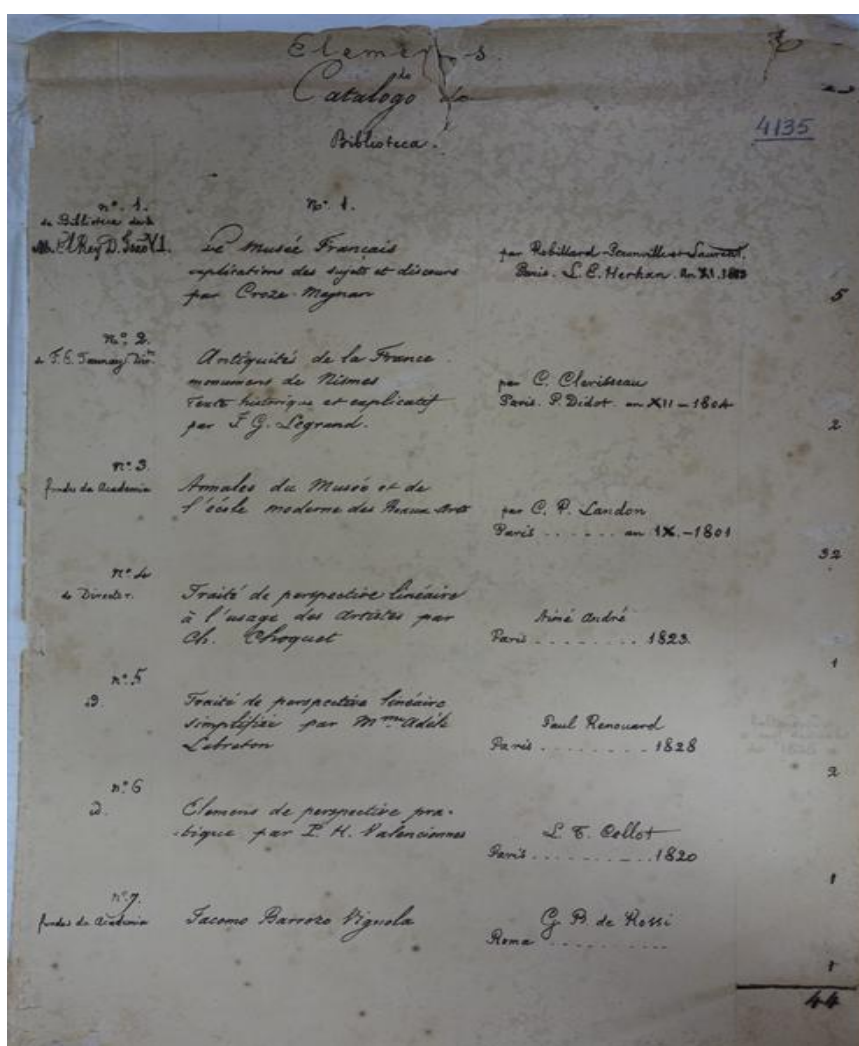 Elementos
do
Catalogo da
Bibliotheca.
4135
nº. 1.
da Bibliotheca de S.
M. El Rey D. João VI.
Nº. 1.
Le Musée Français
explications des sujets et discours
par Croze-Magnan
par Robillard-Peronville et Laurent.
Paris. L. E. Herhan. An XI. 1803
5
Nº. 2.
de F. E. Taunay Dir.
Antiquités de la France
monumens de Nismes
Texte historique et explicatif
par J. G. Legrand.
par C. Clerisseau
Paris. P. Didot. an XII - 1804
2
nº. 3.
fundos da Academia
Annales du Musée et de
l'école moderne des Beaux Arts
par C. P. Landon
Paris . . . . . . an IX. - 1801
32
nº 4
do Director.
Traité de perspective linéaire
à l'usage des Artistes par
Ch. Choquet
Aimé André
Paris . . . . . . . . . 1823.
1
nº. 5
D.
Traité de perspective linéaire
simplifiée par Mme Adèle
Lebreton
Paul Renouard
Paris . . . . . . . . 1828
2
nº. 6
D.
Elemens de perspective pra-
-tique par P. H. Valenciennes
L. T. Cellot
Paris . . . . . . . . . 1820
1
nº. 7.
fundos da Academia
Jacomo Barrozo Vignola
G. B. de Rossi
Roma . . . . . . . . . .
1
44